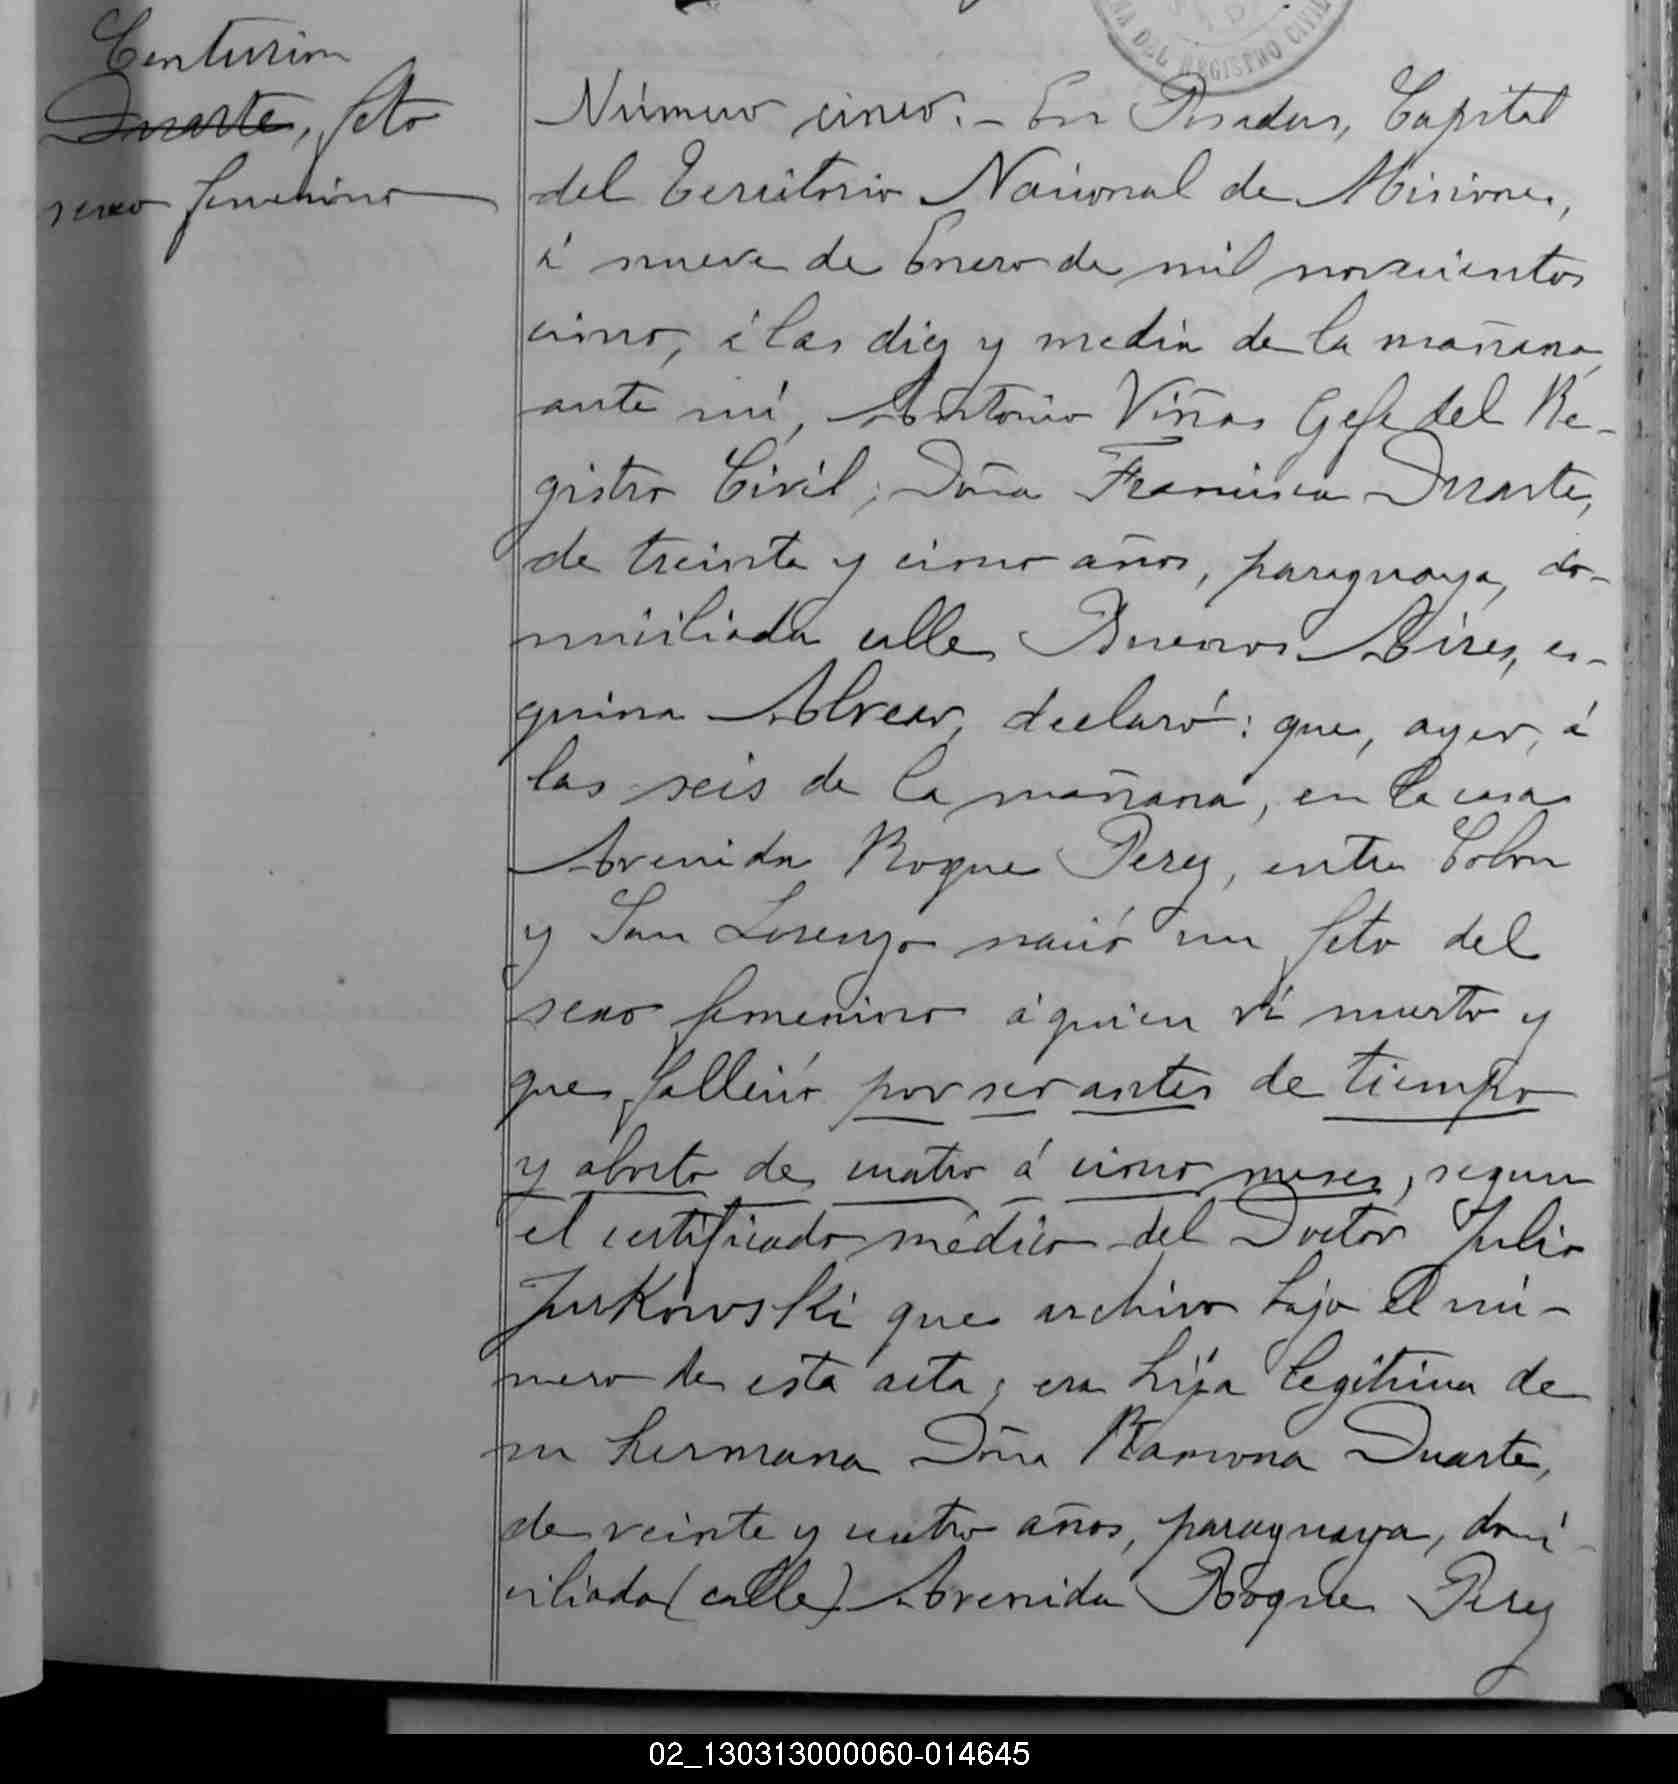 Centurion
Duarte, feto
sexo femenino
NA DEL REGISTRO CIVIL
Número cinco. - En Posadas, Capital
del Territorio Nacional de Misiones,
á nueve de Enero de mil novecientos
cinco, á las diez y media de la mañana,
ante mí, Antonio Viñas Gefe del Re-
gistro Civil; Doña Francisca Duarte,
de treinta y cinco años, paraguaya, do-
miciliada calle Buenos Aires, es-
quina Alvear, declaró: que, ayer, á
las seis de la mañana, en la casa
Avenida Roque Perez, entre Colon
y San Lorenzo nació un feto del
sexo femenino á quien ví muerto y
que falleció por ser antes de tiempo
y aborto de cuatro á cinco meses, segun
el certificado médico del Doctor Julio
Jurkowski que archivo bajo el nú-
mero de esta acta; era hija legítima de
su hermana Doña Ramona Duarte,
de veinte y cuatro años, paraguaya, domi-
ciliada (calle) Avenida Roque Perez
02_130313000060-014645